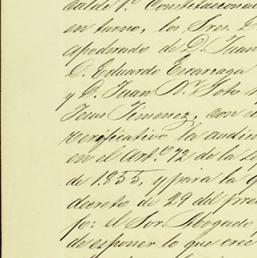 calde 1º Constitucional
en turno, los Sres. D
apoderado de D. Juan
C. Eduardo Escárzaga
y D. Juan N. Soto
Jesus Jimenez, con
verificativo la audien
en el Artº 72 de la L
de 1855, y para la
decreto de 29 del
fo: el Sor. Abogado
de esponer lo que cre